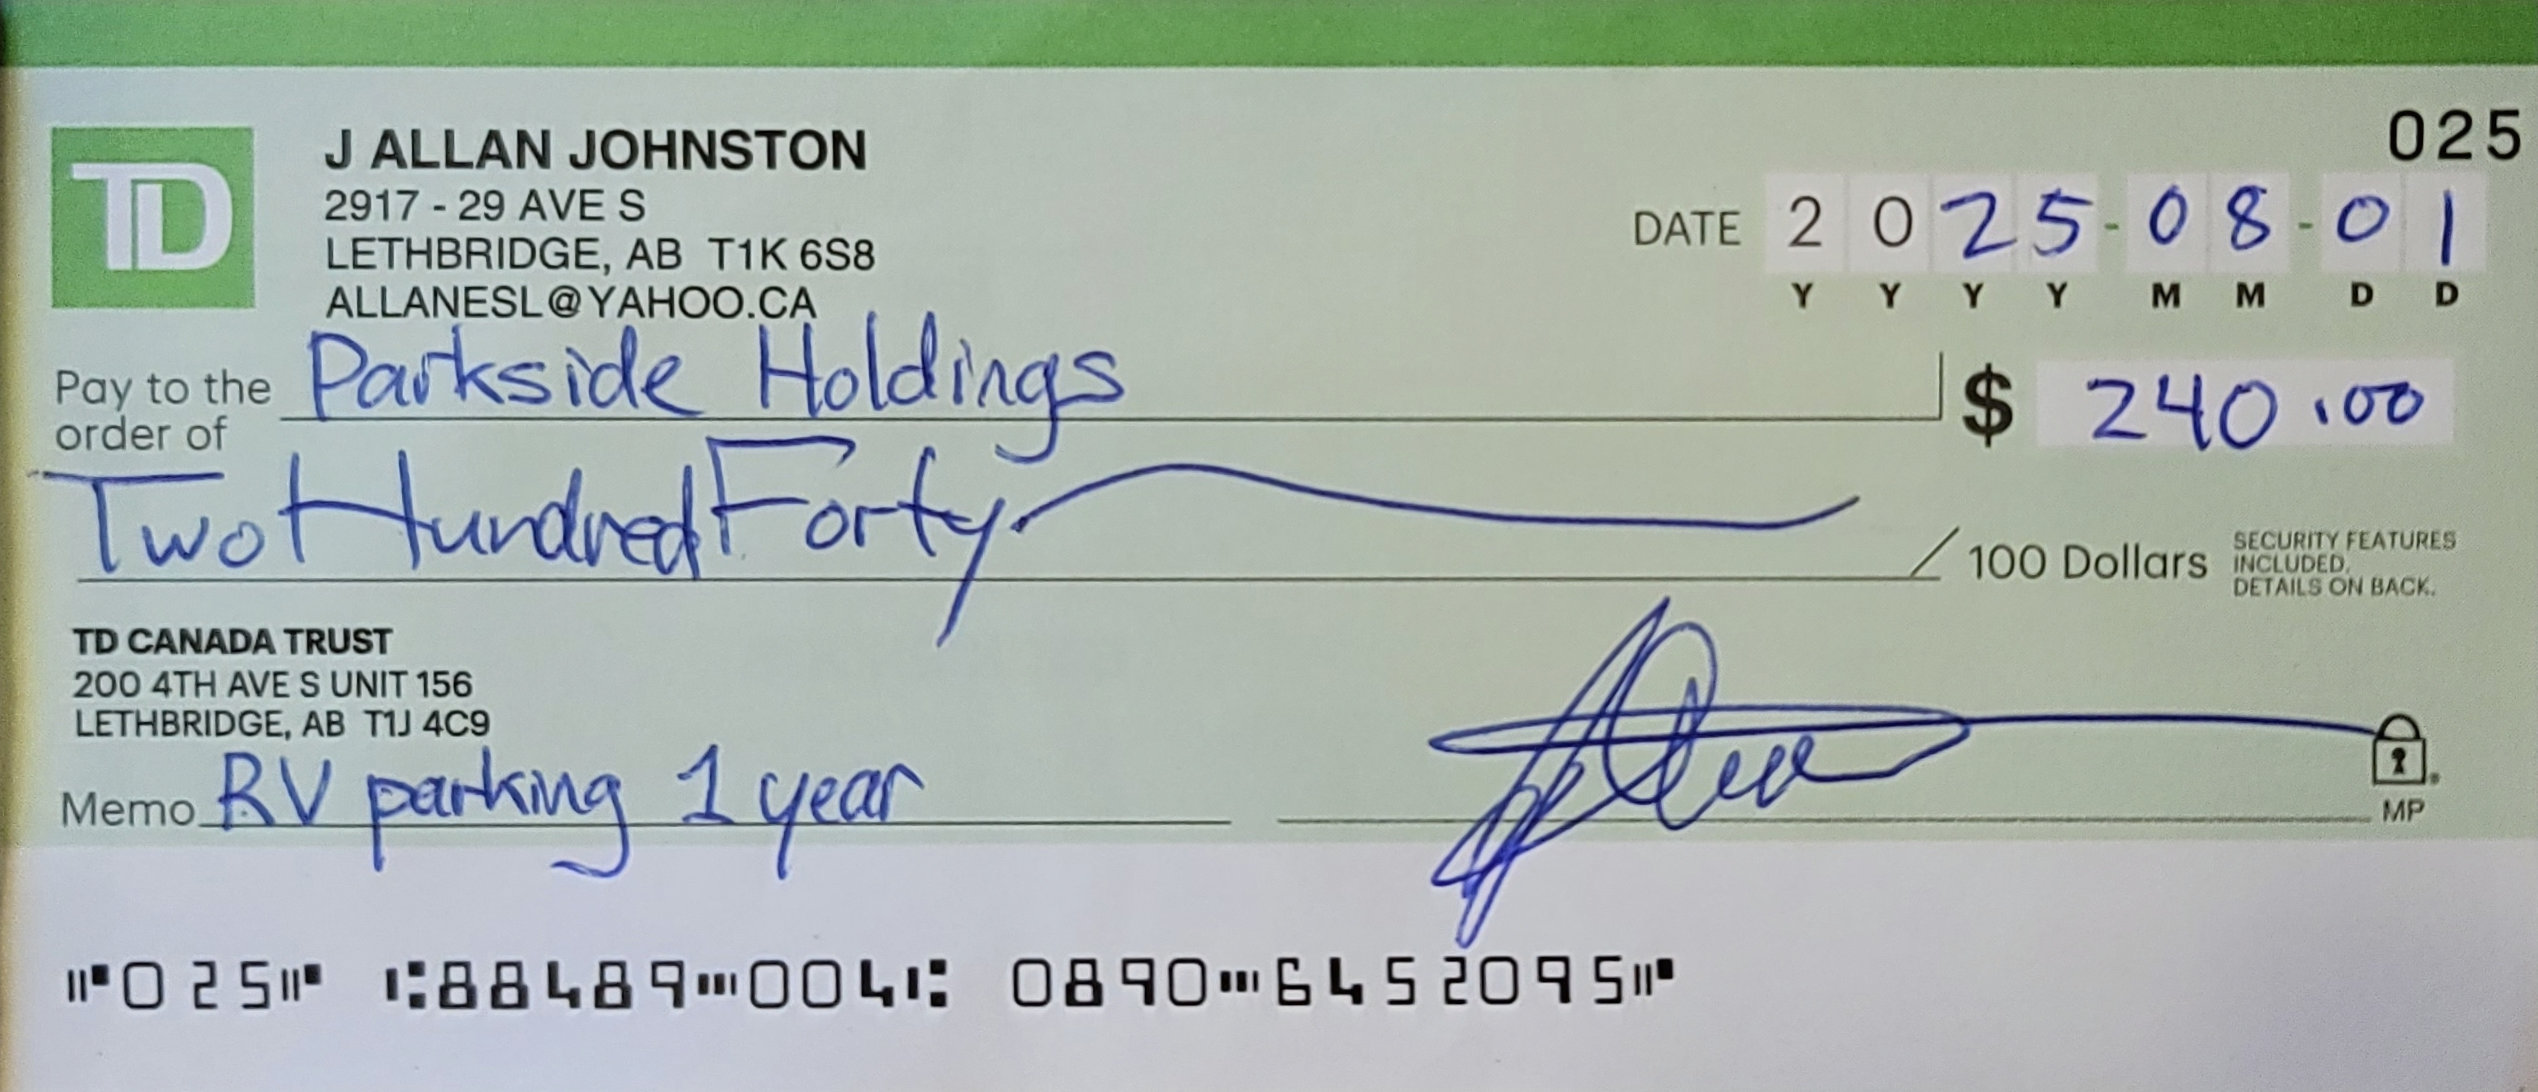 025
TD
J ALLAN JOHNSTON
2917 - 29 AVE S
LETHBRIDGE, AB T1K 6S8
ALLANESL@YAHOO.CA
DATE 2025-08-01
Y Y Y Y M M D D
Pay to the order of Parkside Holdings $ 240.00
Two Hundred Forty / 100 Dollars
SECURITY FEATURES
INCLUDED.
DETAILS ON BACK.
TD CANADA TRUST
200 4TH AVE S UNIT 156
LETHBRIDGE, AB T1J 4C9
Memo RV parking 1 year
MP
⑈025⑈ ⑆88489⑉004⑆ 0890⑉6452095⑈